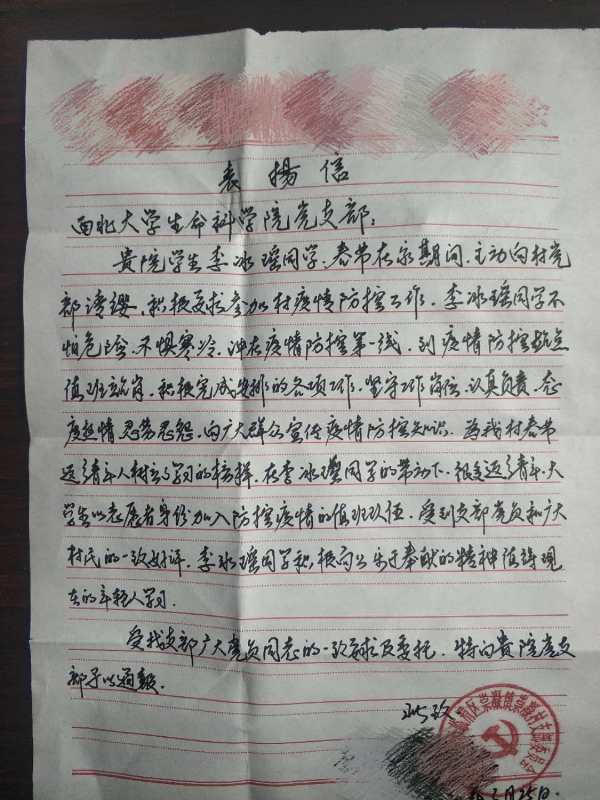 表扬信
西北大学生命科学院党支部:
贵院学生李冰瑶同学,春节在家期间,主动向村党
部请缨,积极要求参加村疫情防控工作。李冰瑶同学不
怕危险、不惧寒冷,冲在疫情防控第一线,到疫情防控执点
值班站岗,积极完成安排的各项工作,坚守工作岗位,认真负责,态
度热情,任劳任怨,向广大群众宣传疫情防控知识,为我村春节
返乡青年人树立了学习的榜样。在李冰瑶同学的带动下,很多返乡青年、大
学生以志愿者身份加入防控疫情的值班队伍,受到支部党员和广大
村民的一致好评。李冰瑶同学积极向上乐于奉献的精神值得现
在的年轻人学习。
受我支部广大党员同志的一致要求及委托,特向贵院党支
部予以通报。
此致
月25日